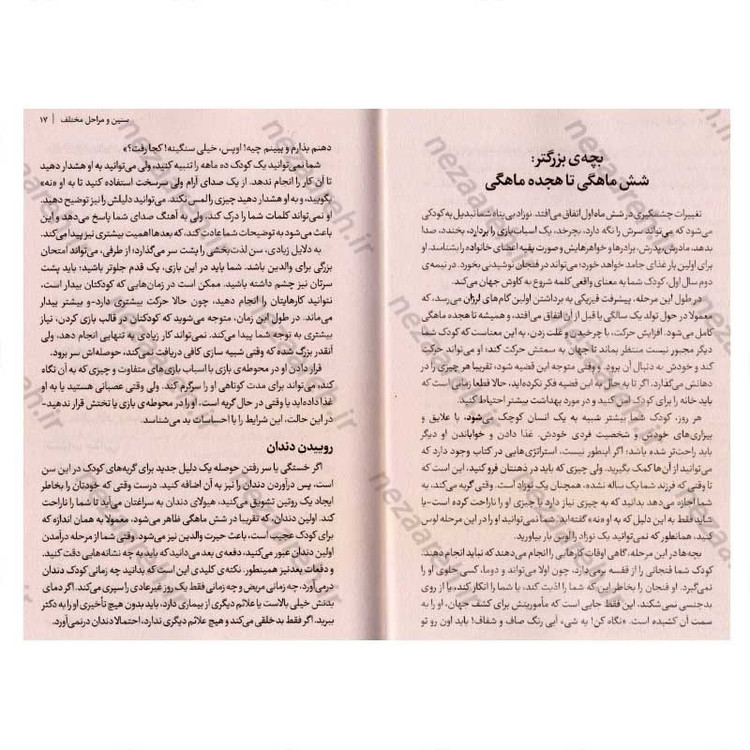 بچه‌ی بزرگتر:
شش ماهگی تا هجده ماهگی
تغییرات چشمگیری در شش ماه اول اتفاق می‌افتد. نوزاد بی‌پناه شما تبدیل به کودکی
می‌شود که می‌تواند سرش را نگه دارد، بچرخد، یک اسباب‌بازی را بردارد، بخندد، صدا
بدهد، مادرش، پدرش، برادرها و خواهرهایش و صورت بقیه اعضای خانواده را بشناسد. او
برای اولین بار غذای جامد خواهد خورد؛ می‌تواند در فنجان نوشیدنی بخورد. در نیمه‌ی
دوم سال اول، کودک شما به معنای واقعی کلمه شروع به کاوش جهان می‌کند.
در طول این مرحله، پیشرفت فیزیکی به برداشتن اولین گام‌های لرزان می‌رسد، که
معمولا در حول تولد یک سالگی یا قبل از آن اتفاق می‌افتد، و همیشه تا هجده ماهگی
کامل می‌شود. افزایش حرکت، با چرخیدن و غلت زدن، به این معناست که کودک شما
دیگر مجبور نیست منتظر بماند تا جهان به سمتش حرکت کند؛ او می‌تواند حرکت
کند و خودش به دنبال آن برود. و وقتی متوجه این قضیه شود، تقریبا هر چیزی را در
دهانش می‌گذارد. اگر تا به حال به این قضیه فکر نکرده‌اید، حالا قطعا زمانی است که
باید خانه را برای کودک امن کنید و در مورد بهداشت بیشتر احتیاط کنید.
هر روز، کودک شما بیشتر شبیه به یک انسان کوچک می‌شود، با علایق و
بیزاری‌های خودش و شخصیت فردی خودش. غذا دادن و خواباندن او دیگر
باید راحت‌تر شده باشد؛ اگر اینطور نیست، استراتژی‌هایی در کتاب وجود دارد که
می‌توانید از آن‌ها کمک بگیرید. ولی چیزی که باید در ذهنتان فرو کنید، این است که
تا وقتی که فرزند شما یک ساله نشده، همچنان یک نوزاد است. وقتی گریه می‌کند، به
شما اجازه می‌دهد بدانید که به چیزی نیاز دارد یا چیزی او را ناراحت کرده است-یا
شاید فقط به این دلیل که به او «نه» گفته‌اید. شما نمی‌توانید او را در این مرحله لوس
کنید، همانطور که نمی‌توانید یک نوزاد را لوس بار بیاورید.
بچه‌ها در این مرحله، گاهی اوقات کارهایی را انجام می‌دهند که نباید انجام دهند.
کودک شما فنجانی را از قفسه برمی‌دارد، چون اولا می‌تواند و دوما، کسی جلوی او را
نمی‌گیرد. او فنجان را بخاطر این که شما را اذیت کند، یا شما را انکار کند، یا از روی
بدجنسی نمی‌شکند. این فقط جایی است که ماموریتش برای کشف جهان، او را به
سمت آن کشیده است. «نگاه کن! یه شی، آبی رنگ صاف و شفاف! باید اون رو تو
سنین و مراحل مختلف | ۱۷
دهنم بذارم و ببینم چیه! اوپس، خیلی سنگینه! کجا رفت؟»
شما نمی‌توانید یک کودک ده ماهه را تنبیه کنید، ولی می‌توانید به او هشدار دهید
تا آن کار را انجام ندهد. از یک صدای آرام ولی سرسخت استفاده کنید تا به او «نه»
بگویید، و به او هشدار دهید چیزی را لمس نکند. می‌توانید دلیلش را نیز توضیح دهید.
او نمی‌تواند کلمات شما را درک کند، ولی به آهنگ صدای شما پاسخ می‌دهد و این
باعث می‌شود به توضیحات شما عادت کند، که بعدها اهمیت بیشتری نیز پیدا می‌کند.
به دلایل زیادی، سن لذت‌بخشی را پشت سر می‌گذارد؛ از طرفی، می‌تواند امتحان
بزرگی برای والدین باشد. شما باید در این بازی، یک قدم جلوتر باشید؛ باید پشت
سرتان نیز چشم داشته باشید. ممکن است در زمان‌هایی که کودکتان بیدار است،
نتوانید کارهایتان را انجام دهید، چون حالا حرکت بیشتری دارد-و بیشتر بیدار
می‌ماند. در طول این زمان، متوجه می‌شوید که کودکتان در قالب بازی کردن، نیاز
بیشتری به توجه شما پیدا می‌کند. او نمی‌تواند کار زیادی به تنهایی انجام دهد، ولی
آنقدر بزرگ شده که وقتی شبیه سازی کافی دریافت نمی‌کند، حوصله‌اش سر برود.
قرار دادن او در محوطه‌ی بازی با اسباب بازی‌های متفاوت و چیزی که به آن نگاه
کند، می‌تواند برای مدت کوتاهی او را سرگرم کند. ولی وقتی عصبانی هستید یا به او
غذا داده‌اید یا وقتی در حال گریه است، او را در محوطه‌ی بازی یا تختش قرار ندهید-
در این حالت، این شرایط را با احساسات بد می‌شناسد.
روییدن دندان
اگر خستگی یا سر رفتن حوصله یک دلیل جدید برای گریه‌های کودک در این سن
است، پس درآوردن دندان را نیز به آن اضافه کنید. درست وقتی که خودتان را بخاطر
ایجاد یک روتین تشویق می‌کنید، هیولای دندان به سراغتان می‌آید تا شما را ناراحت
کند. اولین دندان، که تقریبا در شش ماهگی ظاهر می‌شود، معمولا به همان اندازه که
برای کودک عجیب است، باعث حیرت والدین نیز می‌شود. وقتی شما از مرحله درآمدن
اولین دندان عبور می‌کنید، دفعه‌ی بعد می‌دانید که باید به چه نشانه‌هایی دقت کنید.
و دفعات بعد نیز همینطور. نکته‌ی کلیدی این است که بدانید چه زمانی کودک دندان
درمی‌آورد، چه زمانی مریض و چه زمانی فقط یک روز غیرعادی را سپری می‌کند. اگر دمای
بدنش خیلی بالاست یا علائم دیگری از بیماری دارد، باید بدون هیچ تأخیری او را به دکتر
ببرید. اگر فقط بدخلقی می‌کند و هیچ علائم دیگری ندارد، احتمالا دندان درنمی‌آورد.
nezaareh.ir